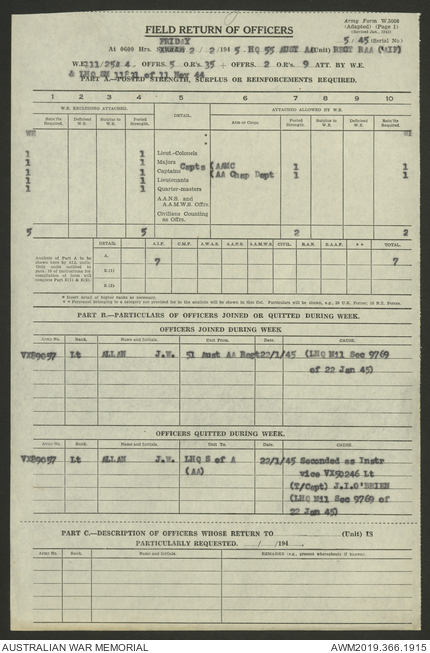 Army Form W.3008
(Adapted) (Page 1)
(Revised Jan., 1943)
FIELD RETURN OF OFFICERS
5 / 45 (Serial No)
FRIDAY
At 0600 Hrs. 2 / 2 /194 5. HQ 55 AUST AA (Unit) REGT RAA (AIF)
W.E. 111/254 4. OFFRS. 5 O.R's. 35 + OFFRS. 2 O.R's. 9 ATT. BY W.E.
& LHQ SM 11831 of 11 Nov 44
PART A.—POSTED STRENGTH, SURPLUS OR REINFORCEMENTS REQUIRED.
1 2 3 4 5 6 7 8 9 10
W.E. EXCLUDING ATTACHED. ATTACHED ALLOWED BY W.E.
Reinfts Required. Deficient W.E. Surplus to W.E. Posted Strength. DETAIL. Arm or Corps. Posted Strength. Deficient W.E. Surplus to W.E. Reinfts Required.
WE WE
*
*
1 1 Lieut.-Colonels
1 1 Majors Capts (AAMC 1 1
1 1 Captains (AA Chap Dept 1 1
1 1 Lieutenants
1 1 Quarter-masters
A.A.N.S. and A.A.M.W.S. Offrs.
Civilians Counting as Offrs.
5 5 2 2
DETAIL. A.I.F. C.M.F. A.W.A.S. A.A.N.S. A.A.M.W.S. CIVIL. R.A.N. R.A.A.F. * * TOTAL.
Analysis of Part A to be shown here by A.I.F. units. Only units notified in para. 10 of Instructions for compilation of form will complete Part E(1) & E(2).
A. 7 7
E.(1)
E.(2)
* Insert detail of higher ranks as necessary.
* * Personnel belonging to a category not provided for in the analysis will be shown in this Col. Particulars will be shown, e.g., 20 U.K. Forces; 15 N.Z. Forces.
PART B.—PARTICULARS OF OFFICERS JOINED OR QUITTED DURING WEEK.
OFFICERS JOINED DURING WEEK
Army No. Rank. Name and Initials. Unit From. Date. CAUSE.
VX89057 Lt ALLAN J.W. 51 Aust AA Regt 22/1/45 (LHQ Mil Sec 9769
of 22 Jan 45)
OFFICERS QUITTED DURING WEEK.
Army No. Rank. Name and Initials. Unit To. Date. CAUSE.
VX89057 Lt ALLAN J.W. LHQ S of A 22/1/45 Seconded as Instr
(AA) vice VX50246 Lt
(T/Capt) J.I.O'BRIEN
(LHQ Mil Sec 9769 of
22 Jan 45)
PART C.—DESCRIPTION OF OFFICERS WHOSE RETURN TO (Unit) IS
PARTICULARLY REQUESTED. / /194
Army No. Rank. Name and Initials. REMARKS (e.g., present whereabouts if known).
AUSTRALIAN WAR MEMORIAL AWM2019.366.1915